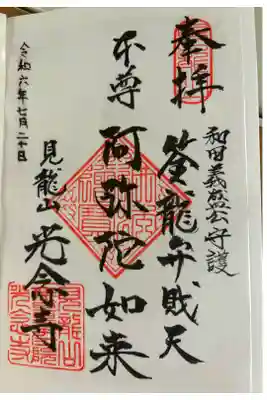 奉拝
和田義盛公守護
筌龍弁財天
本尊 阿弥陀如来
見龍山 光念寺
令和六年七月二十日